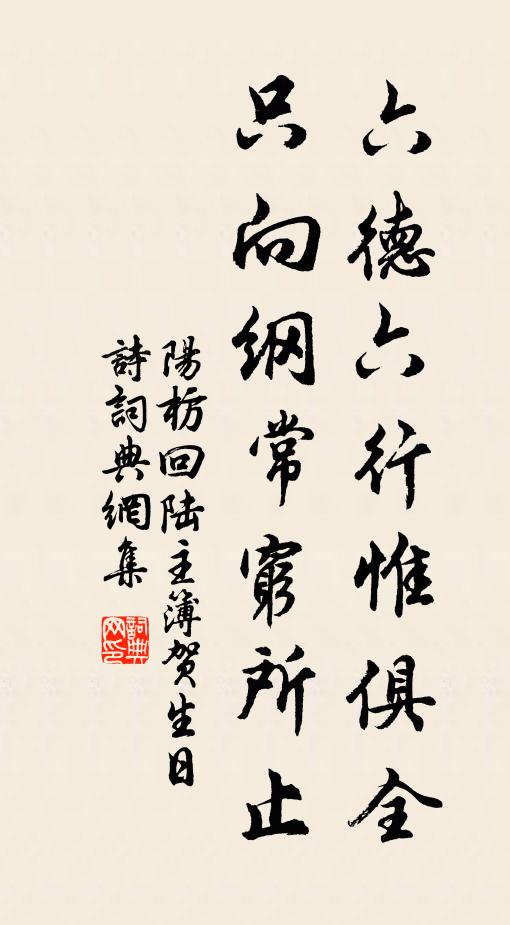 六德六行惟俱全
只向纲常窮所止
陽枋回陆主簿贺生日
詩詞典網集
詞典网印